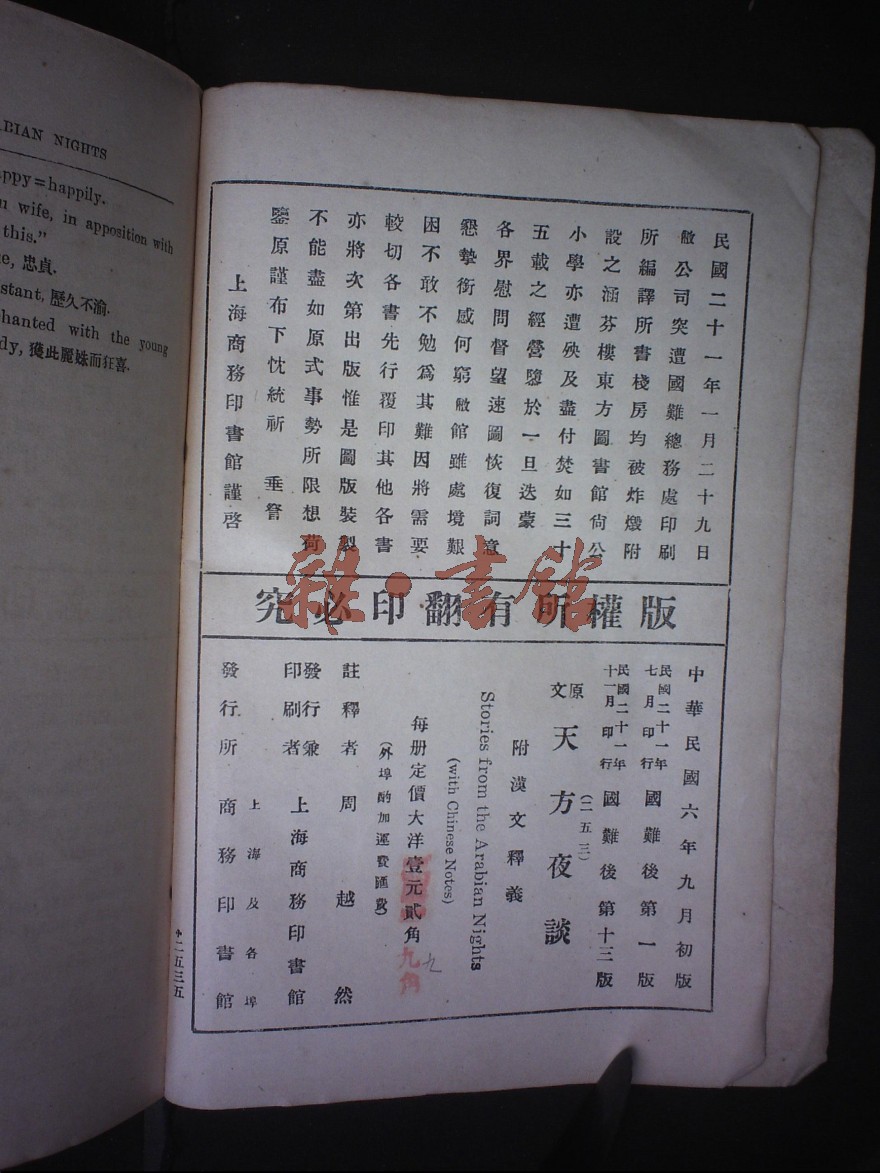 ABIAN NIGHTS
ppy=happily.
wife, in apposition with
this."
忠貞.
stant, 歷久不渝.
hanted with the young
dy, 獲此麗姝而狂喜.
民國二十一年一月二十九日
敝公司突遭國難總務處印刷
所編譯所書棧房均被炸燬附
設之涵芬樓東方圖書館尚公
小學亦遭殃及盡付焚如三十
五載之經營隳於一旦迭蒙
各界慰問督望速圖恢復詞意
懇摯銜感何窮敝館雖處境艱
困不敢不勉爲其難因將需要
較切各書先行覆印其他各書
亦將次第出版惟是圖版裝製
不能盡如原式事勢所限想荷
鑒原謹布下忱統祈 垂詧
上海商務印書館謹啓
究必印翻有所權版
雜·書館
中華民國六年九月初版
民國二十一年七月印行 國難後第一版
民國二十一年十一月印行 國難後第十三版
(二五三)
原文 天方夜談
附漢文釋義
Stories from the Arabian Nights
(with Chinese Notes)
每册定價大洋壹元貳角
九角
九
(外埠酌加運費匯費)
註釋者 周越然
發行兼印刷者 上海商務印書館
上海及各埠
發行所 商務印書館
二五三五